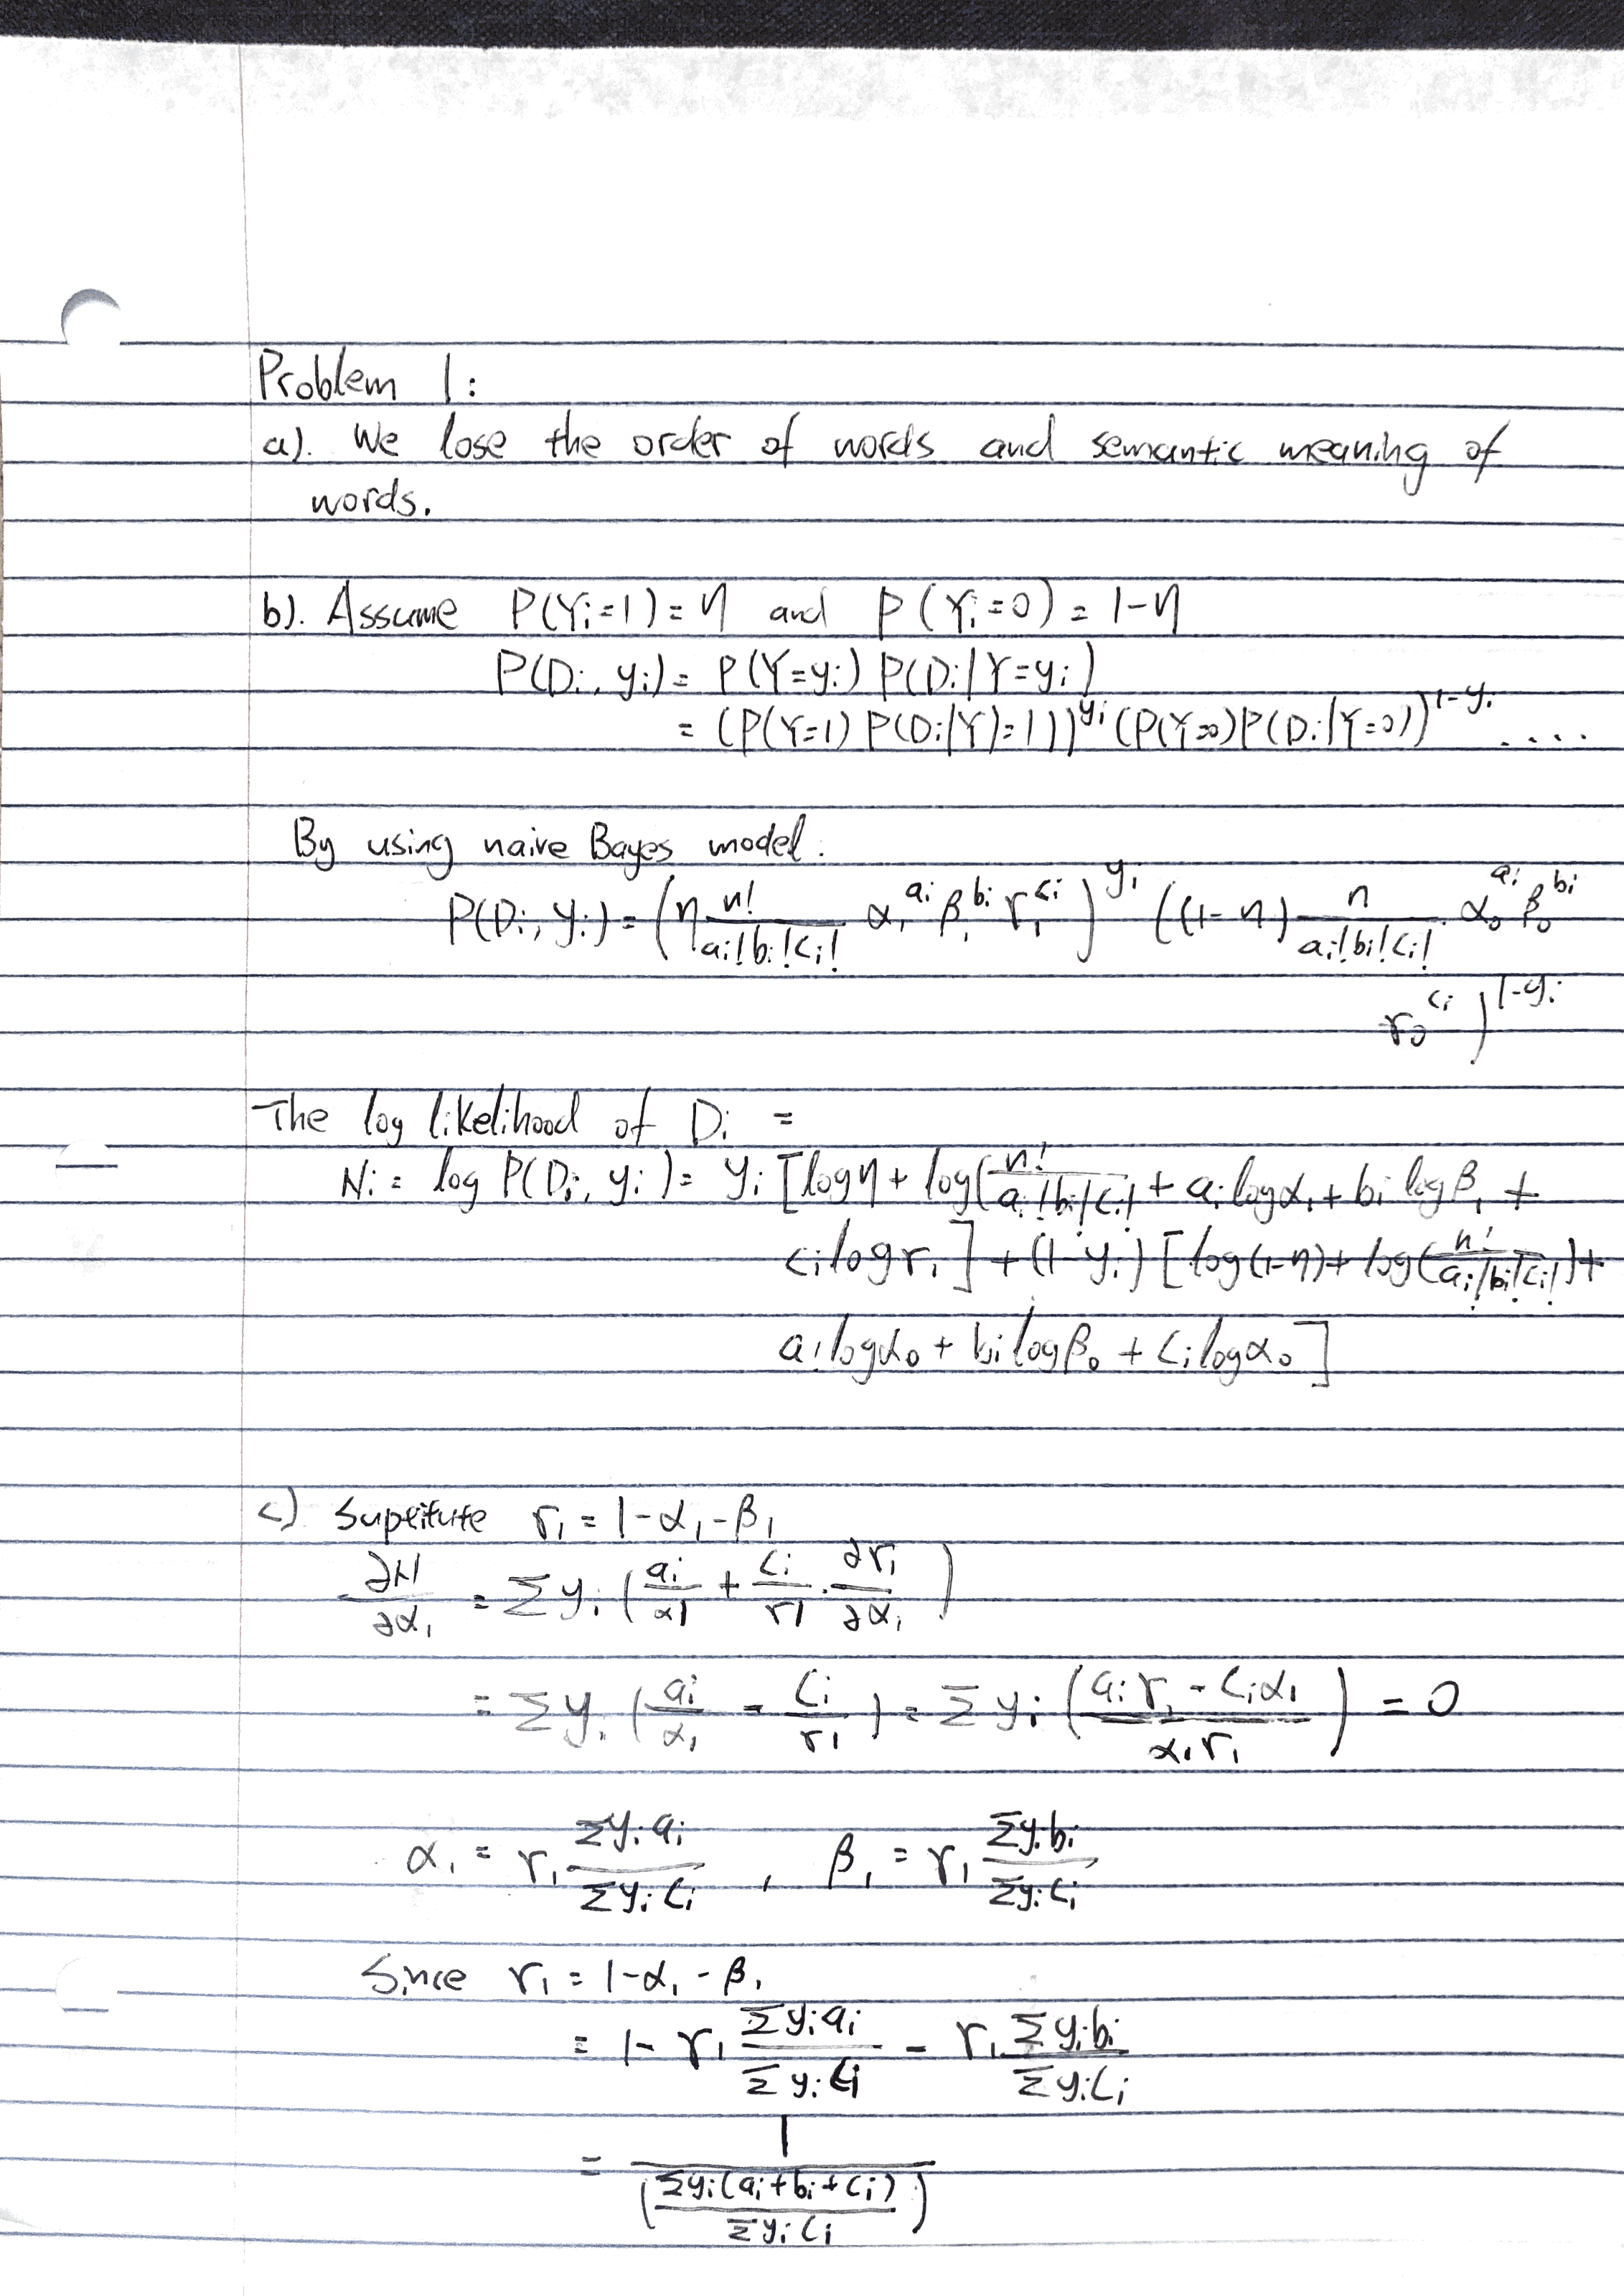 Problem 1:
a). We lose the order of words and semantic meaning of
words.
b). Assume P(Yi=1) = η and P(Yi=0) = 1-η
P(Di, yi) = P(Y=yi) P(Di|Y=yi)
= (P(Y=1) P(Di|Y)=1))^yi (P(Y=0)P(Di|Y=0))^1-yi ....
By using naive Bayes model.
P(Di, yi) = (η n!/(ai!bi!ci!) α1^ai β1^bi r1^ci)^yi ((1-η) n/(ai!bi!ci!) α0^ai β0^bi
r0^ci)^1-yi
The log likelihood of Di =
Ni = log P(Di, yi) = yi [logη + log(n!/(ai!bi!ci! + ai logα1 + bi logβ1 +
ci logr1] + (1-yi) [log(1-η) + log(n!/(ai!bi!ci!)) +
ai logα0 + bi logβ0 + ci logα0]
c) Suptitute r1 = 1-α1-β1
∂N/∂α1 = Σyi (ai/α1 + ci/r1 · ∂r1/∂α1)
= Σyi (ai/α1 - ci/r1) = Σyi ((ai r1 - ciα1)/(α1r1)) = 0
α1 = r1 Σyiai/Σyici , β1 = r1 Σyibi/Σyici
Since r1 = 1-α1-β1
= 1- r1 Σyiai/Σyici - r1 Σyibi/Σyici
= 1/(Σyi(ai+bi+ci)/Σyici)